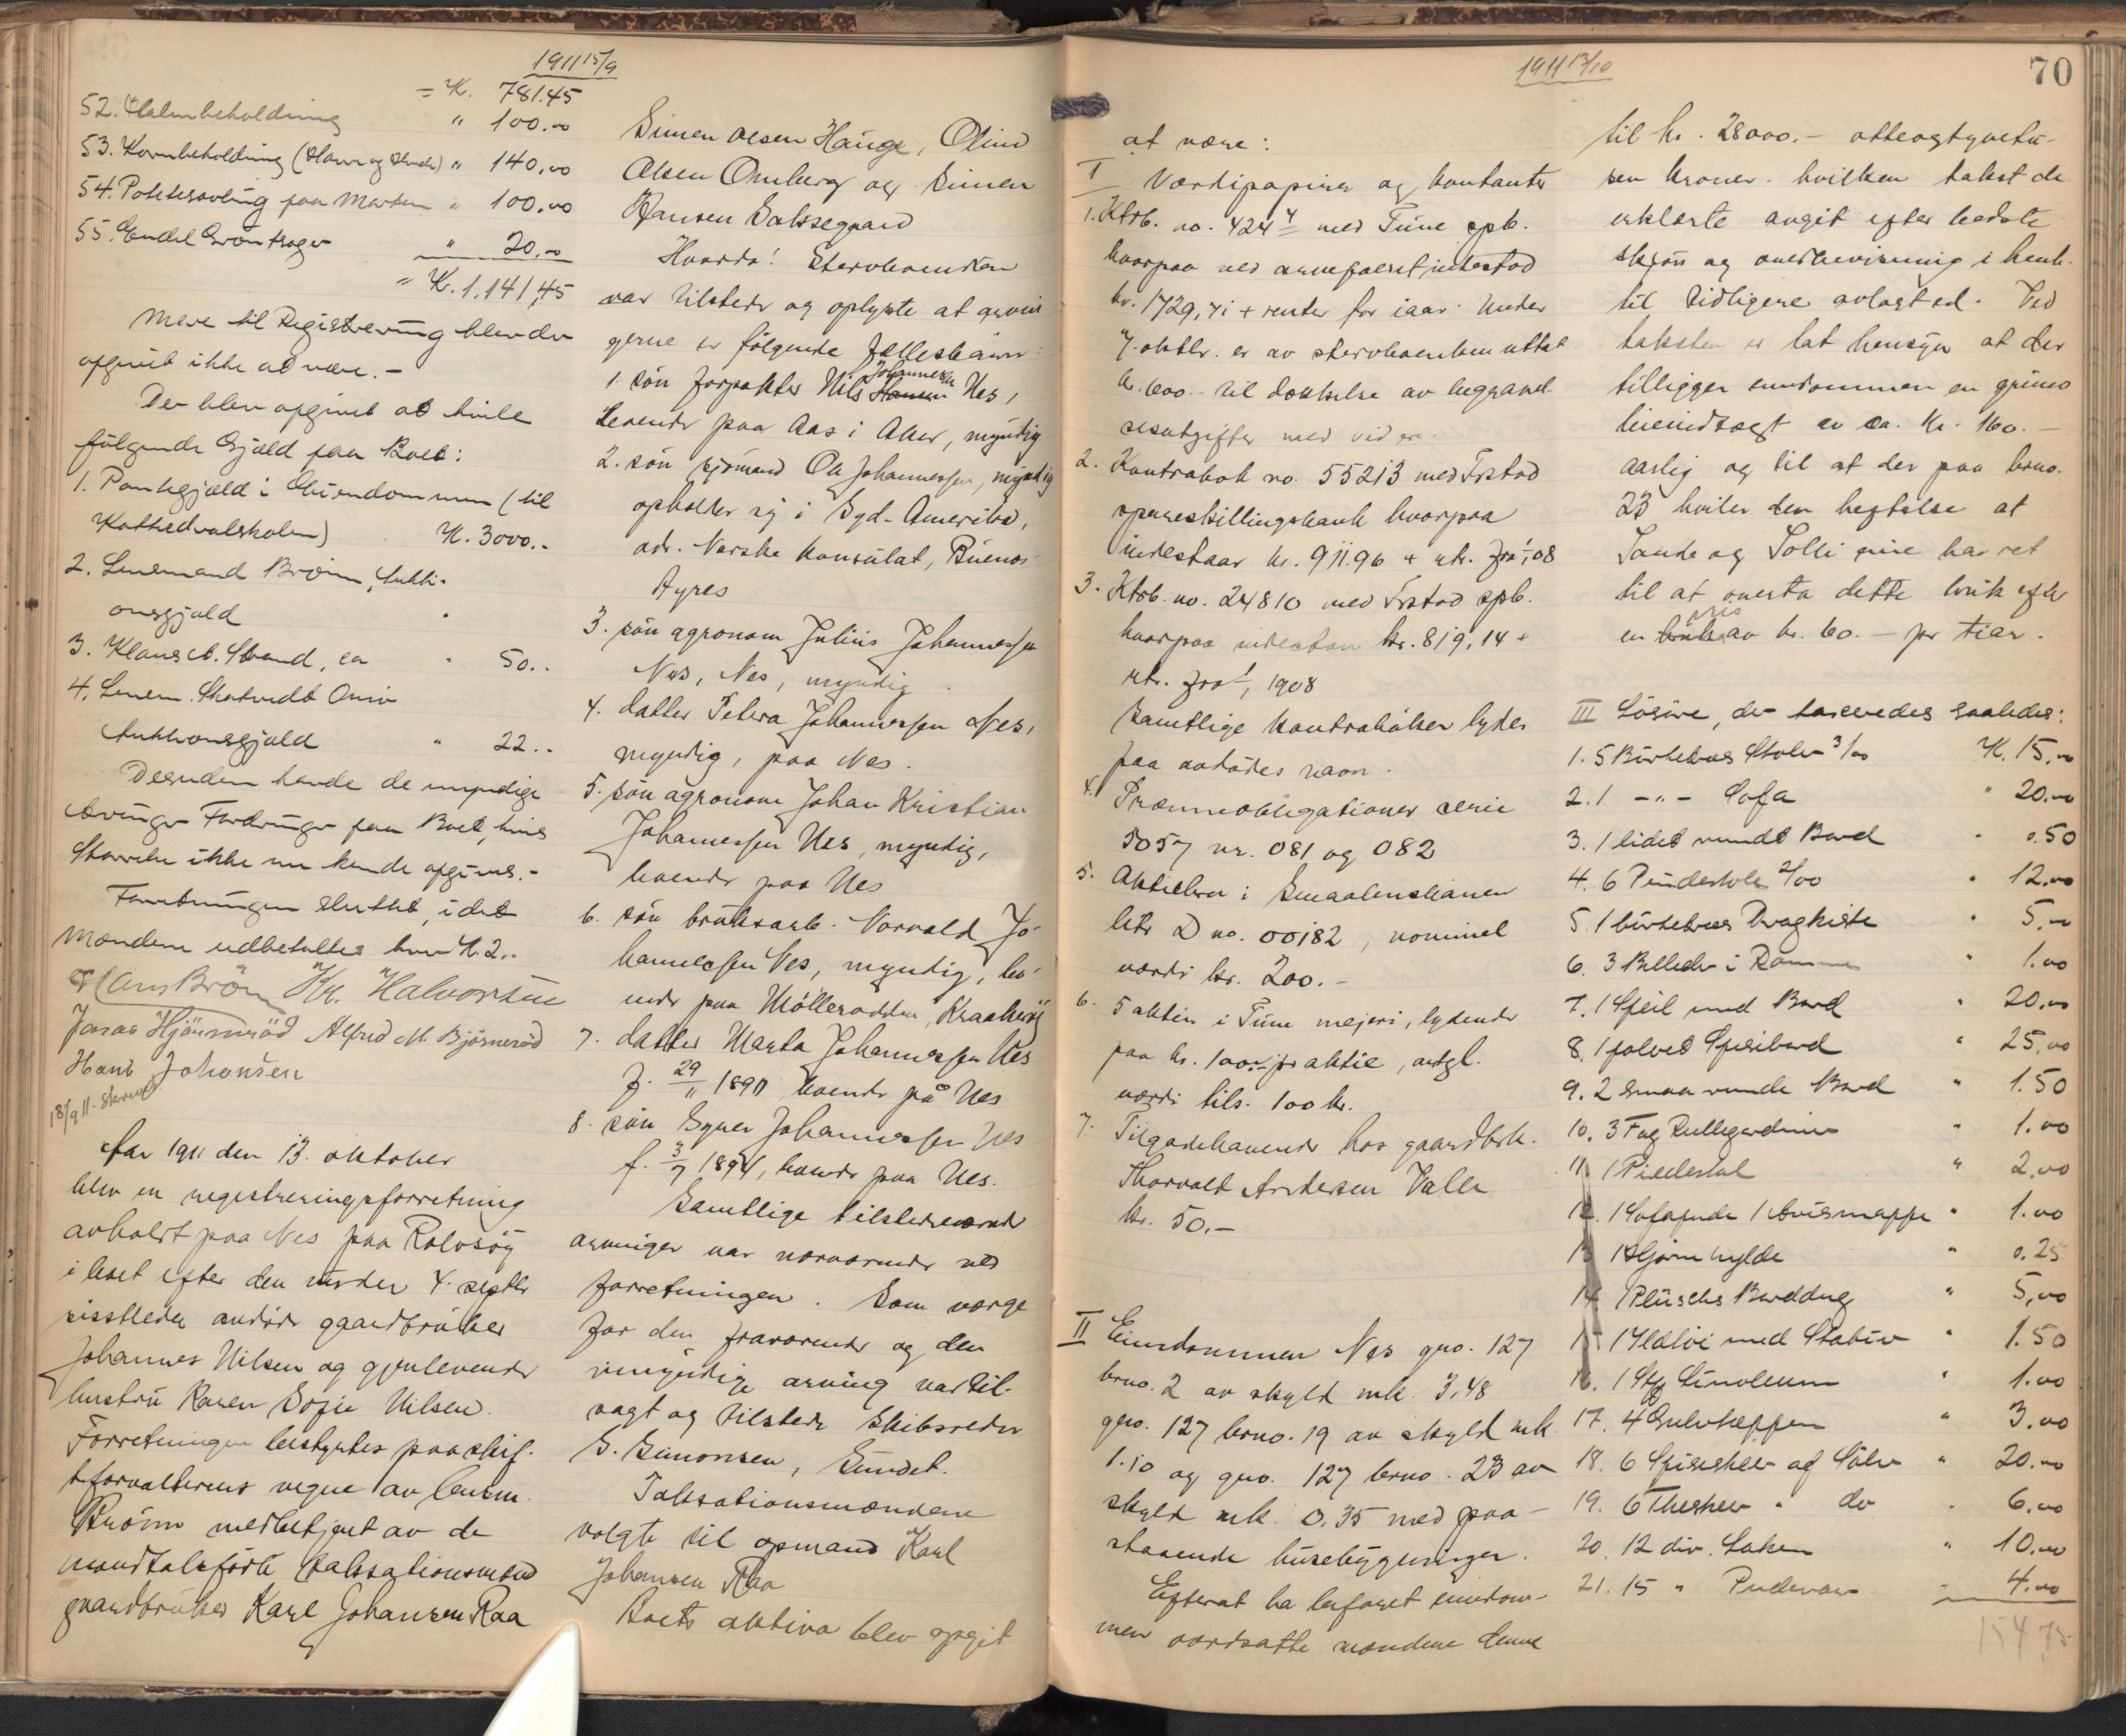 1911 15/9
= K. 781.45
52. Halmbeholdning " 100.00
53. Kornbeholdning (Havre og Hvede) " 140.00
54. Potetesavling paa Marken " 100.00
55. Endel Grøntsager " 20.00
= K. 1.141,45
Mere til Registrering blev der
opgivet ikke at være. -
Der blev opgivet at hvile
følgende Gjæld paa Boet:
1. Pantegjæld i Eiendommen (til
Kathedralskolen) K. 3000.-
2. Lensmand Brøim, Aukti-
onsgjæld "
3. Klaus A. Strand, ca " 50..
4. Lensm. Skatvedt Onsø
Auktionsgjæld " 22..
Desuden havde de myndige
Arvinger Fordringer paa Boet, hvis
Størrelse ikke nu kunde opgives.-
Forretningen sluttet, idet
Mændene udbetaltes hver K. 2..
Hans Brøim Kr. Halvorsen
Jonas Hjørnerød Alfred M. Bjørnerød
Hans Johansen
18/9 11. skrevet
Aar 1911 den 13. oktober
blev en registreringsforretning
avholdt paa Nes paa Rolvsøy
i boet efter den under 4. septbr
sisstleden avdøde gaardbruker
Johannes Nilsen og gjenlevende
hustru Karen Sofie Nilsen.
Forretningen bestyrtes paa skif-
teforvalterens vegne av lensm.
Brøim medbetjent av de
mandtalsførte taksationsmænd
gaardbruker Karl Johansen Raa
Simen Olsen Hauge, Olius
Olsen Omberg og Simen
Hansen Baksegaard
Hvorda! Stervboenken
var tilstede og oplyste at arvin
gerne er følgende fællesbarn:
1. søn forpakter Nils Johannessen Hansen Nes,
boende paa Aas i Aker, myndig
2. søn sjømand Ole Johannessen, myndig
opholder sig i Syd-Amerika,
adr. Norske konsulat, Buenos-
Ayres
3. søn agronom Julius Johannessen
Nes, Nes, myndig.
4. datter Petera Johannessen Nes,
myndig, paa Nes.
5. søn agronom Johan Kristian
Johannessen Nes, myndig,
boende paa Nes
6. søn bruksarb. Norvald Jo-
hannessen Nes, myndig, bo-
ende paa Mølleradden, Kraakerøy
7. datter Marta Johannessen Nes
f. 29/11 1890 boende på Nes
8. søn Egner Johannessen Nes
f. 3/7 1894, boende paa Nes.
Samtlige tilstedeværende
arvinger var nærværende ved
forretningen. Som værge
for den fraværende og den
umyndige arving var til-
sagt og tilstede skibsreder
S. Simonsen, Sundet.
Taksationsmændene
valgte til opmand Karl
Johansen Raa
Boets aktiva blev opgit
1911 13/10
70
at være:
I Værdipapirer og kontanter
1. Ktrb. no. 4244 med Tune spb.
hvorpaa ved arvefaldet indestod
kr. 1729,71 + renter for iaar. Under
7. oktbr. er av stervboenken uttat
kr. 600.- til dækkelse av begravel
sesutgifter med videre.
2. Kontrabok no. 55213 med Frstad
sparreskillingsbank hvorpaa
indestaar kr. 911.96 + rtr. fra 1/1 08
3. Ktrb. no. 24810 med Frstad spb.
hvorpaa indestaar kr. 819,14 +
rtr. fra 1/1, 1908
Samtlige kontrabøker lyder
paa avdødes navn.
4. Præmieobligationer serie
5057 nr. 081 og 082
5. Aktiebrev i Smaalensbanen
litr D no. 00182, nominel
værdi kr. 200.-
6. 5 aktier i Tune mejeri, lydende
paa kr. 100.- pr aktie, antgl.
værdi tils. 100 kr.
7. Tilgodehavende hos gaardbrk.
Thorvald Andersen Valle
kr. 50.-
II Eiendommen Nes gno. 127
brno. 2 av skyld mk. 3,48
gno. 127 brno. 19 av skyld mk.
1.10 og gno. 127 brno. 23 av
skyld mk. 0.35 med paa-
staaende husebygninger.
Efterat ha befaret eiendom-
men værdsatte mændene denne
til kr. 28000.- otteogtyvetu-
sen kroner. hvilken takst de
erklærte avgit efter bedste
skjøn og overbevisning i henh.
til tidligere avlagt ed. Ved
taksten er tat hensyn at der
tilligger eiendommen en
av ca. kr. 160.-
aarlig og til at der paa brno.
23 hviler den heftelse at
Sande og Solli har ret
til at overta dette bruk efter
en pris bruk av kr. 60.- pr tiar.
III Løsøre, der taxeredes saaledes:
1. 5 Birketræs Stoler 3/00 K. 15,00
2. 1 -"- Sofa " 20.00
3. 1 lidet rundt Bord " 0.50
4. 6 Pindestole 2/00 " 12.00
5. 1 birketræs Dragkiste " 5,00
6. 3 Billeder i Ramme " 1.00
7. 1 Speil med Bord " 20.00
8. 1 poleret Spisebord " 25,00
9. 2 smaa runde Bord " 1.50
10. 3 Fag Rullegardiner " 1.00
11. 1 Piedestal " 2.00
12. 1 Sofapude 1 Avismappe " 1.00
13. 1 Hjørnehylde " 0.25
14. 1 Plüschs Borddug " 5,00
15. 1 med Stativ " 1.50
16. 1 Stk Linoleum " 1.00
17. 4 Gulvtæpper " 3.00
18. 6 Spiseskeer af Sølv " 20.00
19. 6 Theskeer " do " 6.00
20. 12 div. Laken " 10.00
21. 15 " Pudevar " 4.00
154,75